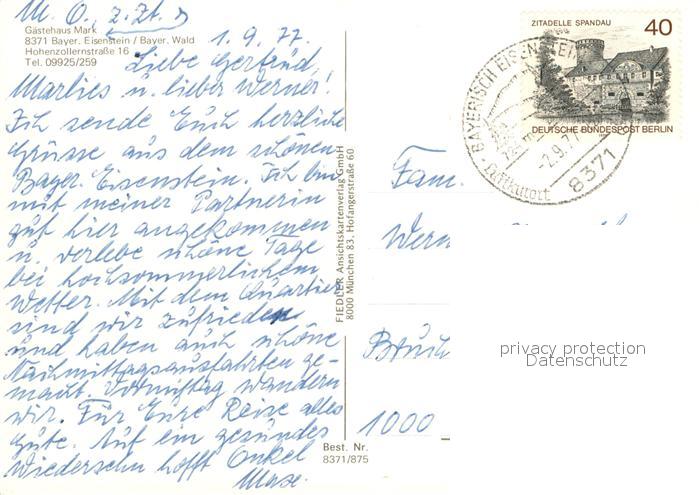 M. O. z. Zt.
Gästehaus Mark
8371 Bayer. Eisenstein / Bayer. Wald
Hohenzollernstraße 16
Tel. 09925/259
1.9.77
Liebe Gertrud,
Marlies u. lieber Werner!
Ich sende Euch herzliche
Grüsse aus dem schönen
Bayer. Eisenstein. Ich bin
mit meiner Partnerin
gut hier angekommen
u. verlebe schöne Tage
bei hochsommerlichem
Wetter. Mit dem Quartier
sind wir zufrieden
und haben auch schöne
Nachmittagsausfahrten ge-
macht. Vormittag wandern
wir. Für Eure Reise alles
Gute. Auf ein gesundes
Wiedersehn hofft Onkel
Max.
FIEDLER Ansichtskartenverlag GmbH
8000 München 83, Hofangerstraße 60
Best. Nr.
8371/875
ZITADELLE SPANDAU
40
DEUTSCHE BUNDESPOST BERLIN
BAYERISCH EISENSTEIN
-2.9.77
Luftkurort
8371
Fam.
Wern
Bruch
1000
privacy protection
Datenschutz